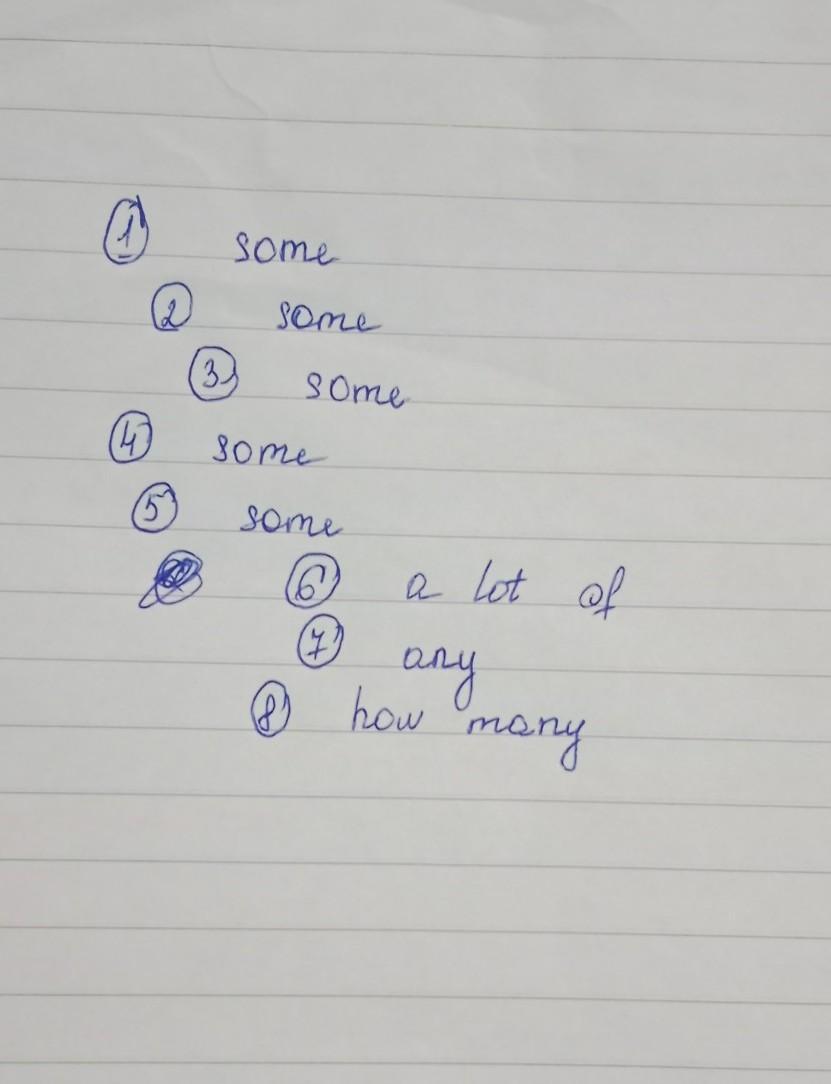 1 some
2 some
3 some
4 some
5 some
6 a lot of
7 any
8 how many